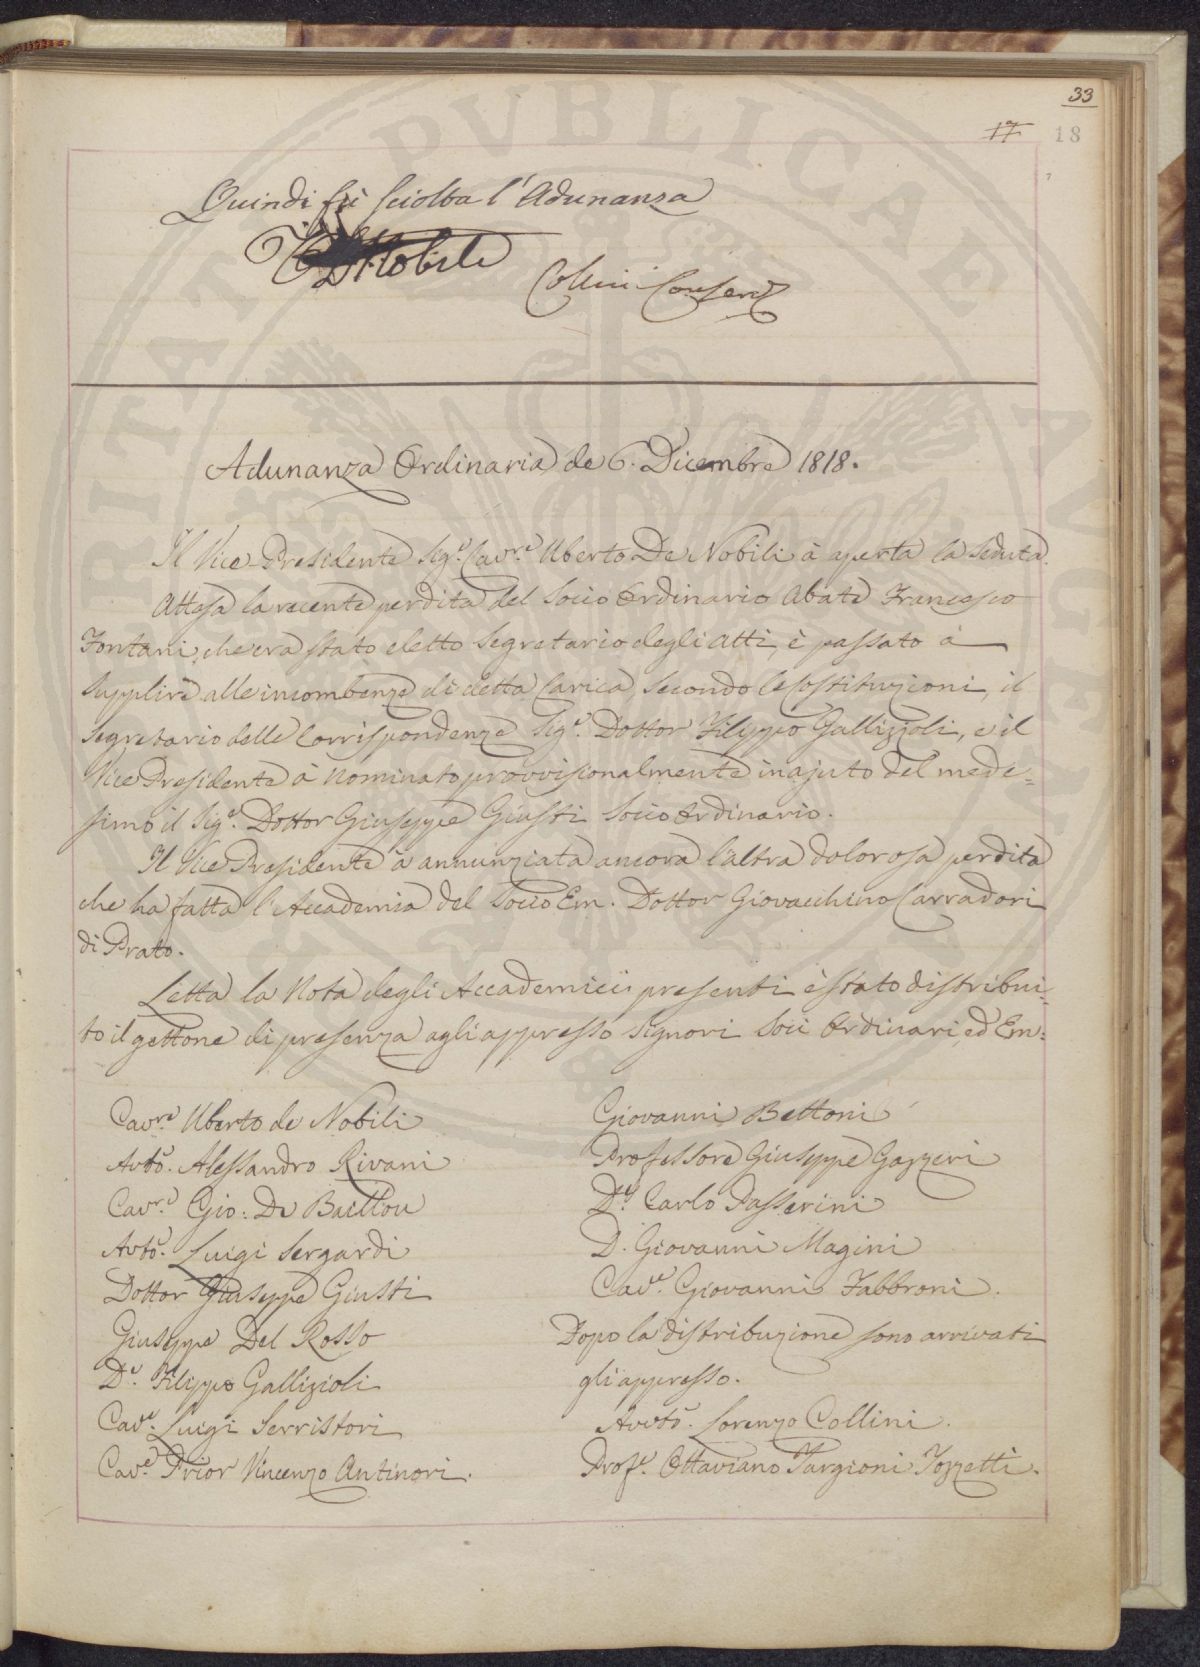 33
17 18
Quindi fù sciolta l'Adunanza
Collini
Adunanza Ordinaria de 6. Dicembre 1818.
Il Vice-Presidente Sig.e Cav.re Uberto De Nobili à aperta la seduta.
Attesa la recente perdita del Socio Ordinario Abate Francesco
Fontani, che era stato eletto Segretario degli Atti, è passato a
supplire alle incombenze di detta Carica, secondo le Costituzioni, il
segretario delle Corrispondenze Sig.e Dottor Filippo Gallizzioli, e il
Vice Presidente à nominato provvisionalmente in ajuto del mede=
simo il Sig.e Dottor Giuseppe Giusti Socio Ordinario.
Il Vice Presidente à annunziata ancora l'altra dolorosa perdita
che ha fatta l'Accademia del Socio Em. Dottor Giovacchino Carradori
di Prato.
Letta la Nota degli Accademici presenti è stato distribui=
to il gettone di presenza agli appresso Signori Socii Ordinari, ed Em:
Cav.re Uberto de Nobili
Avto. Alessandro Rivani
Cav.re Gio: De Baillou
Avto. Luigi Sergardi
Dottor Giuseppe Giusti
Giuseppe Del Rosso
D.e Filippo Gallizioli
Cav.e Luigi Serristori
Cav.e Prior Vincenzo Antinori.
Giovanni Bettoni
Professore Giuseppe Gazzeri
D.e Carlo Passerini
D. Giovanni Magini
Cav.e Giovanni Fabbroni.
Dopo la distribuzione sono arrivati
gli appresso.
Avvto. Lorenzo Collini.
Prof.e Ottaviano Targioni Tozzetti.